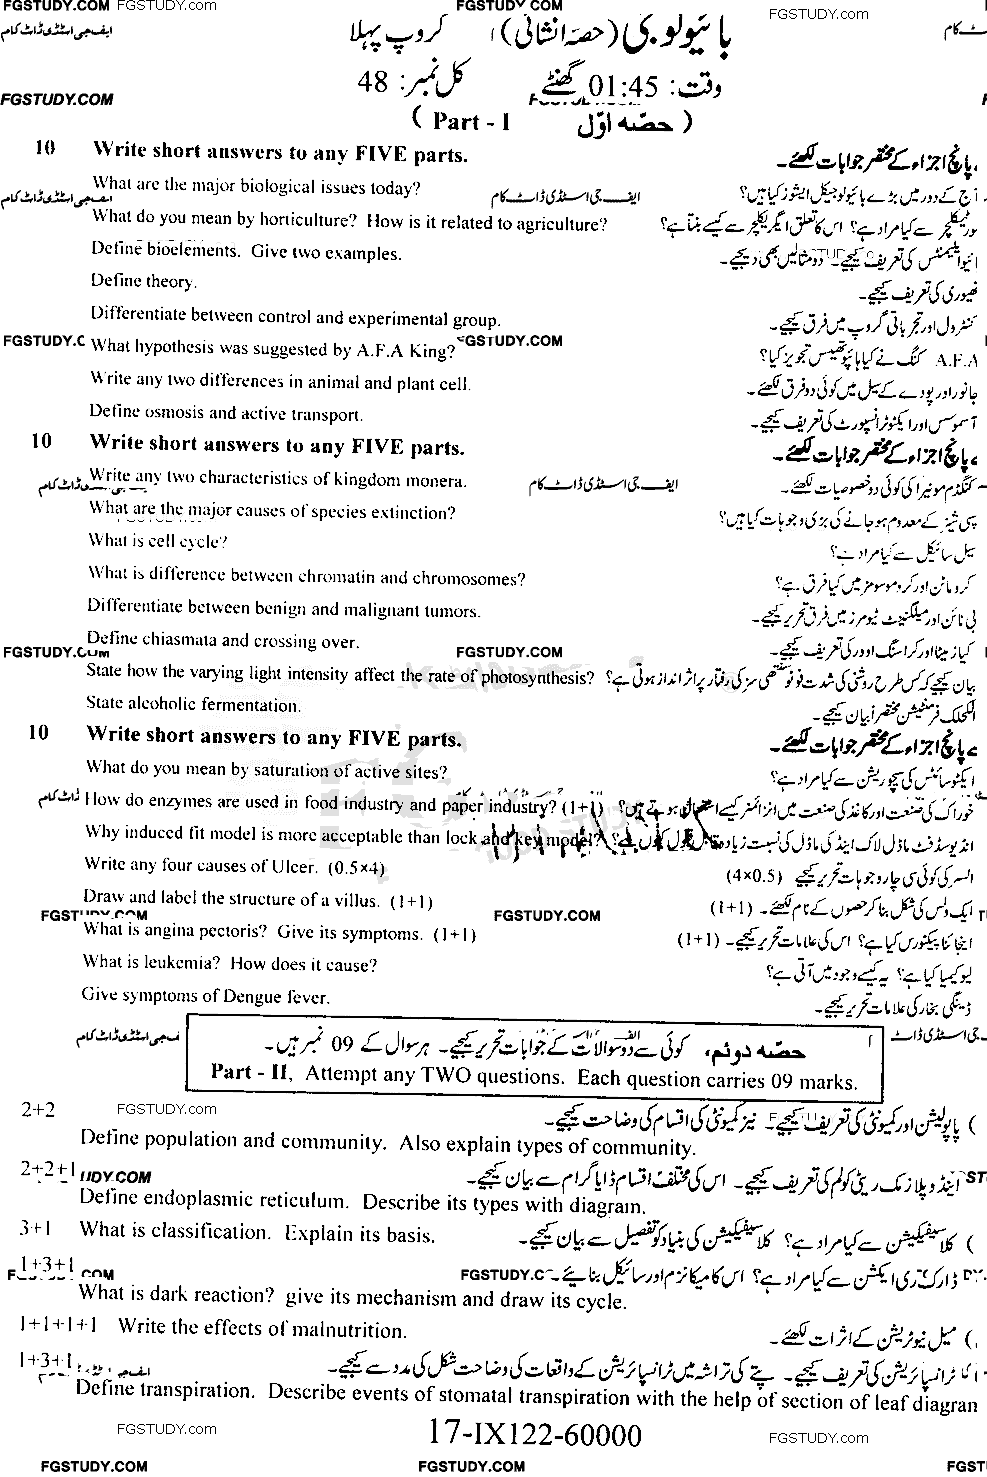 FGSTUDY.COM FGSTUDY.com FGSTUDY.COM FGSTUDY.com
ایف جی اسٹڈی ڈاٹ کام بائیولوجی (حصہ انشائی) گروپ پہلا
وقت: 01:45 گھنٹے کل نمبر: 48
FGSTUDY.COM
( Part - I حصّہ اوّل )
10 Write short answers to any FIVE parts. پانچ اجزاء کے مختصر جوابات لکھئے۔
What are the major biological issues today? آج کے دور میں بڑے بائیولوجیکل ایشوز کیا ہیں؟
ایف جی اسٹڈی ڈاٹ کام
What do you mean by horticulture? How is it related to agriculture? سے کیا مراد ہے؟ اس کا تعلق ایگریکلچر سے کیسے بنتا ہے؟
Define bioelements. Give two examples. کی تعریف کیجیے۔ دو مثالیں بھی دیجیے۔
Define theory. تھیوری کی تعریف کیجیے۔
Differentiate between control and experimental group. کنٹرول اور تجرباتی گروپ میں فرق کیجیے۔
FGSTUDY.C What hypothesis was suggested by A.F.A King? GSTUDY.COM A.F.A کنگ نے کیا ہائپوتھیسس تجویز کیا؟
Write any two differences in animal and plant cell. جانور اور پودے کے سیل میں کوئی دو فرق لکھئے۔
Define osmosis and active transport. آسموسس اور ایکٹو ٹرانسپورٹ کی تعریف کیجیے۔
10 Write short answers to any FIVE parts. پانچ اجزاء کے مختصر جوابات لکھئے۔
Write any two characteristics of kingdom monera. ایف جی اسٹڈی ڈاٹ کام کنگڈم مونیرا کی کوئی دو خصوصیات لکھئے۔
What are the major causes of species extinction? سپی شیز کے معدوم ہو جانے کی بڑی وجوہات کیا ہیں؟
What is cell cycle? سیل سائیکل سے کیا مراد ہے؟
What is difference between chromatin and chromosomes? کروماٹن اور کروموسومز میں کیا فرق ہے؟
Differentiate between benign and malignant tumors. بی نائن اور میلگنینٹ ٹیومرز میں فرق تحریر کیجیے۔
Define chiasmata and crossing over. کیازمیٹا اور کراسنگ اوور کی تعریف کیجیے۔
FGSTUDY.COM FGSTUDY.COM
State how the varying light intensity affect the rate of photosynthesis? بیان کیجیے کہ کس طرح روشنی کی شدت فوٹوسنتھی سز کی رفتار پر اثر انداز ہوتی ہے؟
State alcoholic fermentation. الکحلک فرمنٹیشن مختصراً بیان کیجیے۔
10 Write short answers to any FIVE parts. پانچ اجزاء کے مختصر جوابات لکھئے۔
What do you mean by saturation of active sites? ایکٹو سائٹس کی سیچوریشن سے کیا مراد ہے؟
How do enzymes are used in food industry and paper industry? (1+1) خوراک کی صنعت اور کاغذ کی صنعت میں انزائمز کیسے استعمال ہوتے ہیں؟
Why induced fit model is more acceptable than lock and key model? انڈیوسڈ فٹ ماڈل لاک اینڈ کی ماڈل کی نسبت زیادہ قابل قبول کیوں ہے؟
Write any four causes of Ulcer. (0.5×4) السر کی کوئی سی چار وجوہات تحریر کیجیے (4×0.5)
Draw and label the structure of a villus. (1+1) ایک ولس کی شکل بنا کر حصوں کے نام لکھئے۔ (1+1)
FGSTUDY.COM FGSTUDY.COM
What is angina pectoris? Give its symptoms. (1+1) اینجائنا پیکٹورس کیا ہے؟ اس کی علامات تحریر کیجیے۔ (1+1)
What is leukemia? How does it cause? لیوکیمیا کیا ہے؟ یہ کیسے وجود میں آتی ہے؟
Give symptoms of Dengue fever. ڈینگی بخار کی علامات تحریر کیجیے۔
حصّہ دوئم، کوئی سے دو سوالات کے جوابات تحریر کیجیے۔ ہر سوال کے 09 نمبر ہیں۔
Part - II, Attempt any TWO questions. Each question carries 09 marks.
2+2 FGSTUDY.com پاپولیشن اور کمیونٹی کی تعریف کیجیے۔ نیز کمیونٹی کی اقسام کی وضاحت کیجیے۔
Define population and community. Also explain types of community.
2+2+1 UDY.COM اینڈوپلازمک ریٹی کولم کی تعریف کیجیے۔ اس کی مختلف اقسام ڈایاگرام سے بیان کیجیے۔
Define endoplasmic reticulum. Describe its types with diagram.
3+1 What is classification. Explain its basis. کلاسیفیکیشن سے کیا مراد ہے؟ کلاسیفیکیشن کی بنیاد کو تفصیل سے بیان کیجیے۔
1+3+1 FGSTUDY.C ڈارک ری ایکشن سے کیا مراد ہے؟ اس کا میکانزم اور سائیکل بنائیے۔
What is dark reaction? give its mechanism and draw its cycle.
1+1+1+1 Write the effects of malnutrition. میل نیوٹریشن کے اثرات لکھئے۔
1+3+1 ٹرانسپائریشن کی تعریف کیجیے۔ پتے کی تراشہ میں ٹرانسپائریشن کے واقعات کی وضاحت شکل کی مدد سے کیجیے۔
Define transpiration. Describe events of stomatal transpiration with the help of section of leaf diagran
FGSTUDY.com 17-IX122-60000 FGSTUDY.com
FGSTUDY.COM FGSTUDY.COM FGST